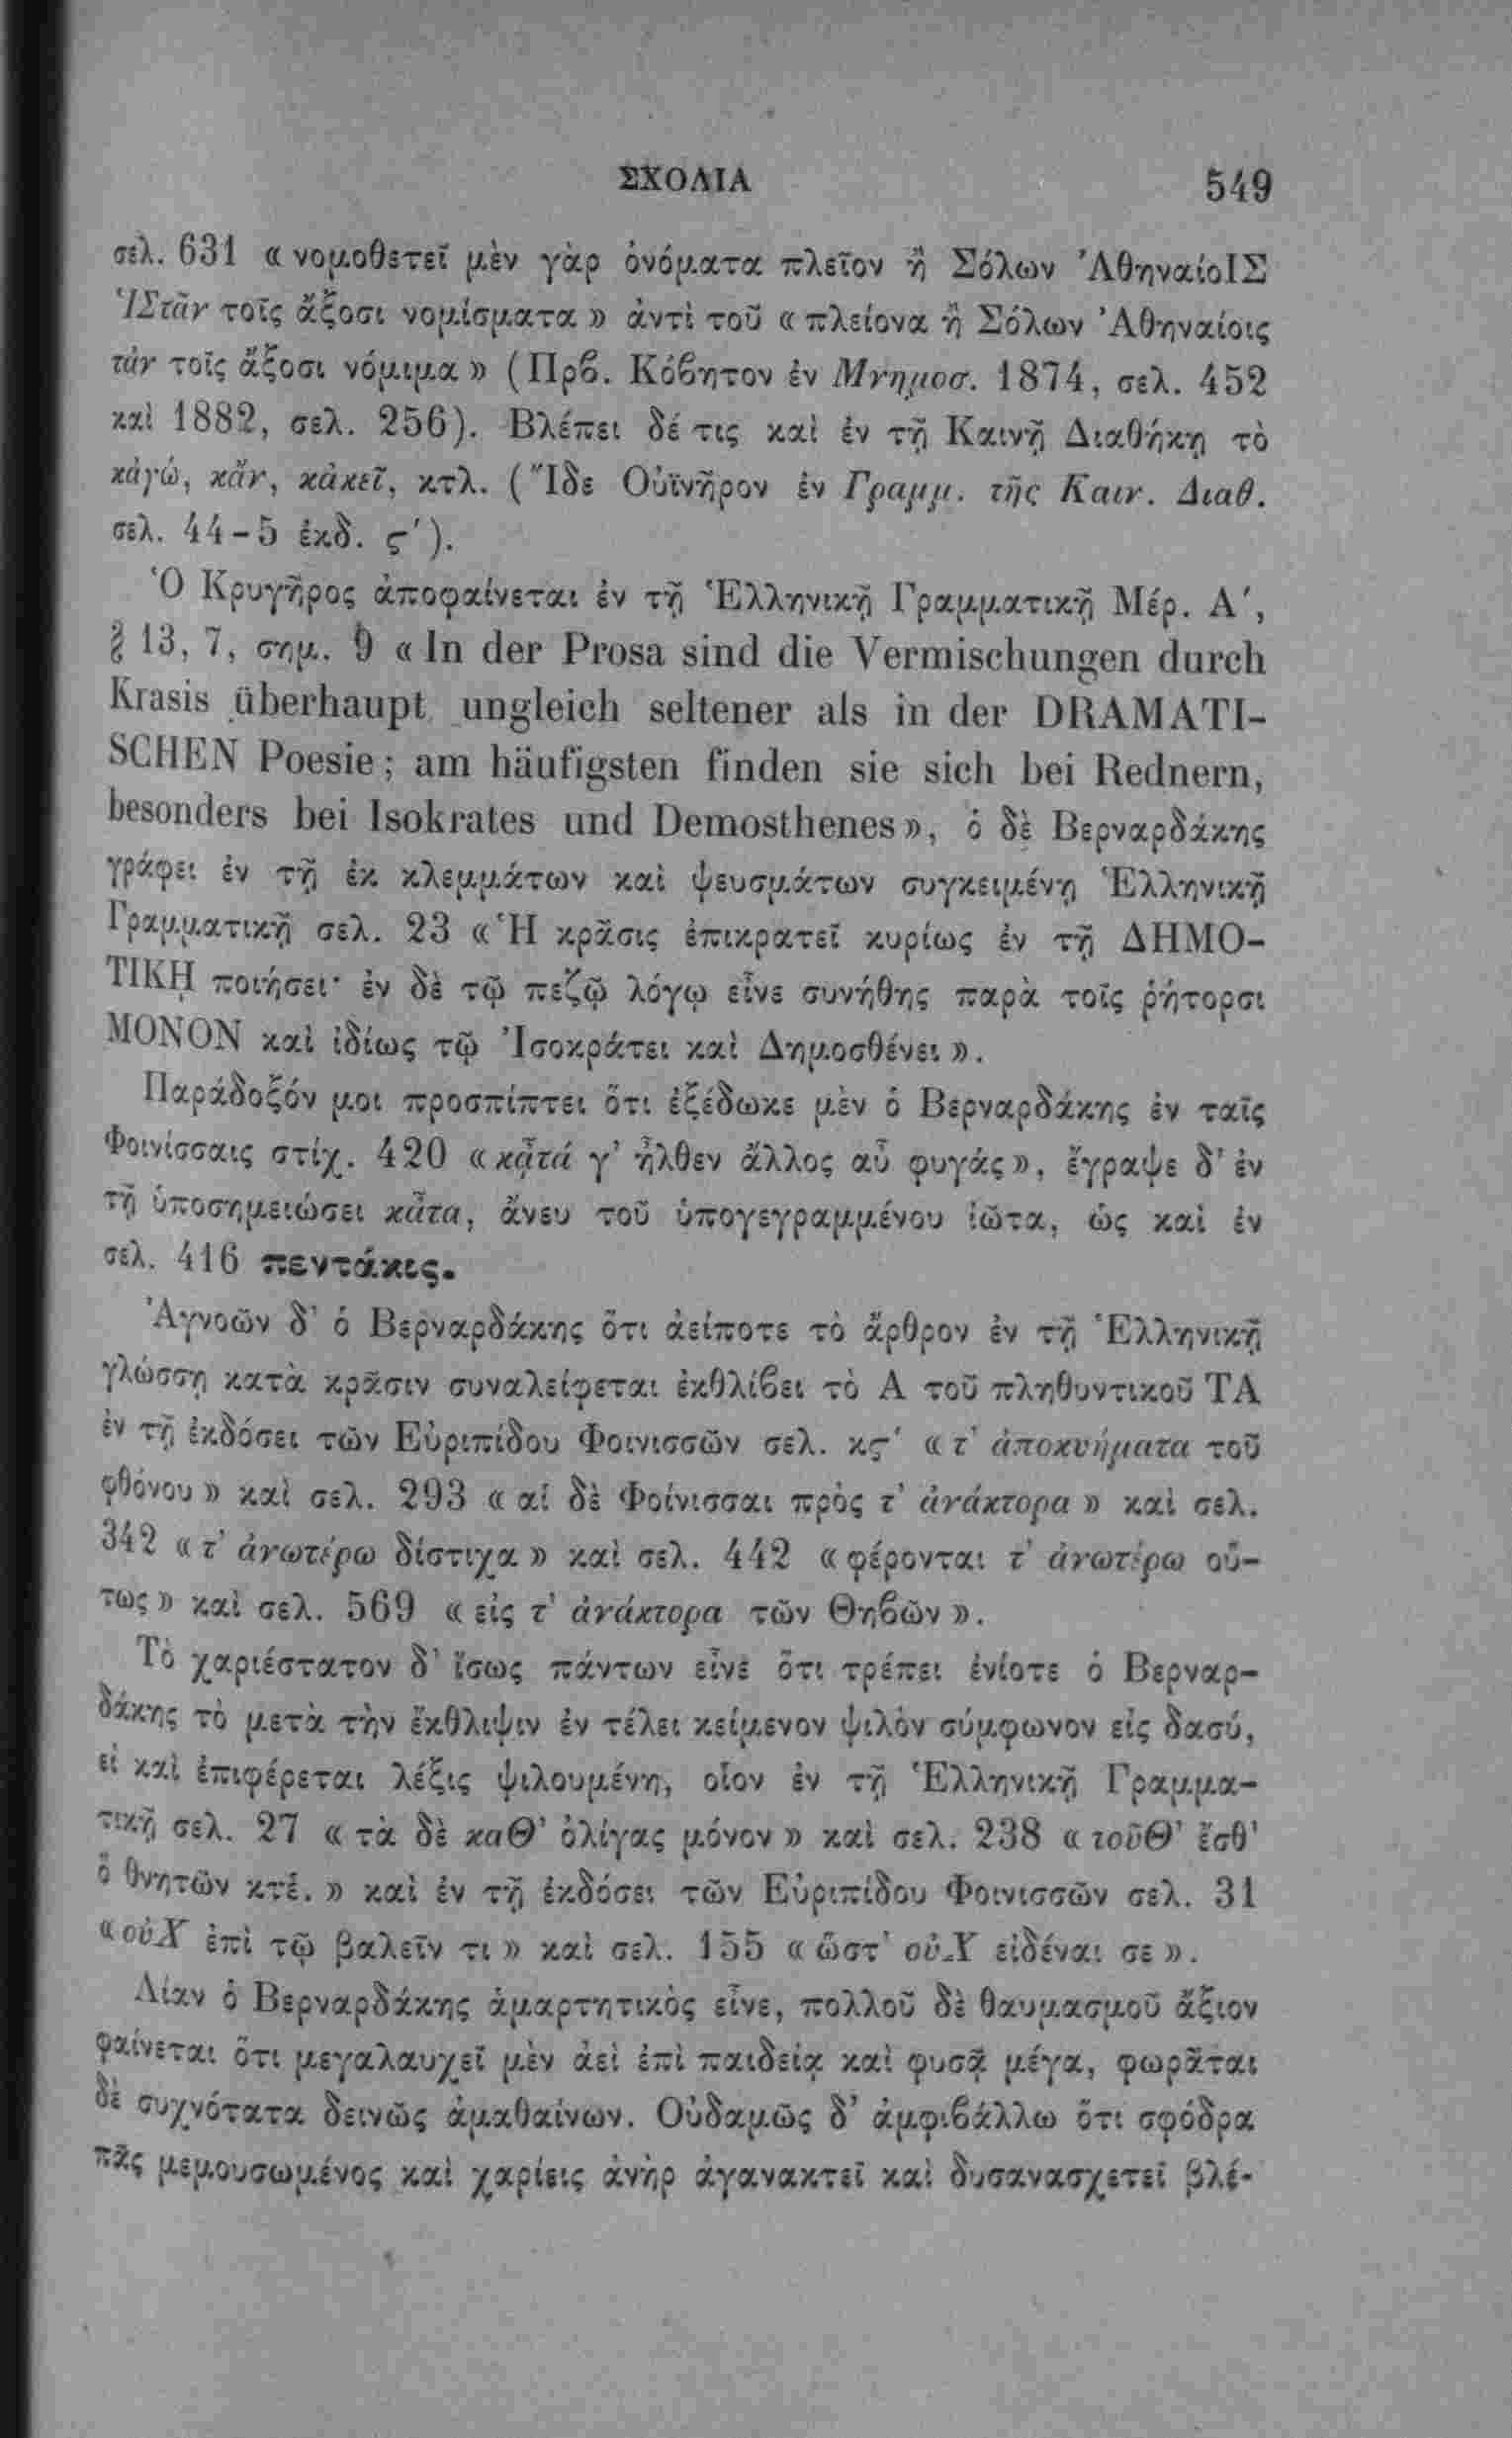 ΣΧΟΛΙΑ 549
σελ. 631 « νομοθετεῖ μὲν γὰρ ὀνόματα πλεῖον ἢ Σόλων ᾿ΑθηναίοΙΣ
ἹΣτᾶν τοῖς ἄξοσι νομίσματα » ἀντὶ τοῦ « πλείονα ἢ Σόλων ᾿Αθηναίοις
τἀν τοῖς ἄξοσι νόμιμα » (Πρβ. Κόβητον ἐν Μνημοσ. 1874, σελ. 452
καὶ 1882, σελ. 256). Βλέπει δέ τις καὶ ἐν τῇ Καινῇ Διαθήκῃ τὸ
κἀγώ, κἄν, κἀκεῖ, κτλ. (Ἴδε Οὐϊνῆρον ἐν Γραμμ. τῆς Καιν. Διαθ.
σελ. 44-5 ἐκδ. ϛ').
Ὁ Κρυγῆρος ἀποφαίνεται ἐν τῇ Ἑλληνικῇ Γραμματικῇ Μέρ. Α',
§ 13, 7, σημ. 9 « In der Prosa sind die Vermischungen durch
Krasis überhaupt ungleich seltener als in der DRAMATI-
SCHEN Poesie; am häufigsten finden sie sich bei Rednern,
besonders bei Isokrates und Demosthenes », ὁ δὲ Βερναρδάκης
γράφει ἐν τῇ ἐκ κλεμμάτων καὶ ψευσμάτων συγκειμένῃ Ἑλληνικῇ
Γραμματικῇ σελ. 23 « Ἡ κρᾶσις ἐπικρατεῖ κυρίως ἐν τῇ ΔΗΜΟ-
ΤΙΚῌ ποιήσει· ἐν δὲ τῷ πεζῷ λόγῳ εἶνε συνήθης παρὰ τοῖς ῥήτορσι
ΜΟΝΟΝ καὶ ἰδίως τῷ Ἰσοκράτει καὶ Δημοσθένει ».
Παράδοξόν μοι προσπίπτει ὅτι ἐξέδωκε μὲν ὁ Βερναρδάκης ἐν ταῖς
Φοινίσσαις στίχ. 420 « κᾆτά γ' ἦλθεν ἄλλος αὖ φυγάς », ἔγραψε δ' ἐν
τῇ ὑποσημειώσει κἆτα, ἄνευ τοῦ ὑπογεγραμμένου ἰῶτα, ὡς καὶ ἐν
σελ. 416 πεντάκις.
Ἀγνοῶν δ' ὁ Βερναρδάκης ὅτι ἀείποτε τὸ ἄρθρον ἐν τῇ Ἑλληνικῇ
γλώσσῃ κατὰ κρᾶσιν συναλείφεται ἐκθλίβει τὸ Α τοῦ πληθυντικοῦ ΤΑ
ἐν τῇ ἐκδόσει τῶν Εὐριπίδου Φοινισσῶν σελ. κϛ' « τ' ἀποκυήματα τοῦ
φθόνου » καὶ σελ. 293 « αἱ δὲ Φοίνισσαι πρὸς τ' ἀνάκτορα » καὶ σελ.
342 « τ' ἀνωτέρω δίστιχα » καὶ σελ. 442 « φέρονται τ' ἀνωτέρω οὕ-
τως » καὶ σελ. 569 « εἰς τ' ἀνάκτορα τῶν Θηβῶν ».
Τὸ χαριέστατον δ' ἴσως πάντων εἶνε ὅτι τρέπει ἐνίοτε ὁ Βερναρ-
δάκης τὸ μετὰ τὴν ἔκθλιψιν ἐν τέλει κείμενον ψιλὸν σύμφωνον εἰς δασύ,
εἰ καὶ ἐπιφέρεται λέξις ψιλουμένη, οἷον ἐν τῇ Ἑλληνικῇ Γραμμα-
τικῇ σελ. 27 « τὰ δὲ καΘ' ὀλίγας μόνον » καὶ σελ. 238 « τοῦΘ' ἔσθ'
ὃ θνητῶν κτἑ. » καὶ ἐν τῇ ἐκδόσει τῶν Εὐριπίδου Φοινισσῶν σελ. 31
« οὐΧ ἐπὶ τῷ βαλεῖν τι » καὶ σελ. 155 « ὥστ' οὐΧ εἰδέναι σε ».
Λίαν ὁ Βερναρδάκης ἁμαρτητικὸς εἶνε, πολλοῦ δὲ θαυμασμοῦ ἄξιον
φαίνεται ὅτι μεγαλαυχεῖ μὲν ἀεὶ ἐπὶ παιδείᾳ καὶ φυσᾷ μέγα, φωρᾶται
δὲ συχνότατα δεινῶς ἀμαθαίνων. Οὐδαμῶς δ' ἀμφιβάλλω ὅτι σφόδρα
πᾶς μεμουσωμένος καὶ χαρίεις ἀνὴρ ἀγανακτεῖ καὶ δυσανασχετεῖ βλέ-